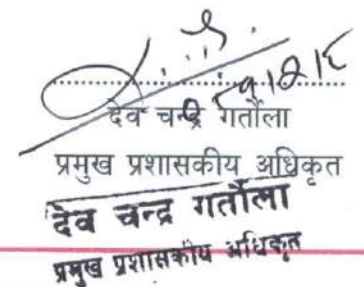 देव चन्द्र गर्तौला
प्रमुख प्रशासकीय अधिकृत
देव चन्द्र गर्तौला
प्रमुख प्रशासकीय अधिकृत